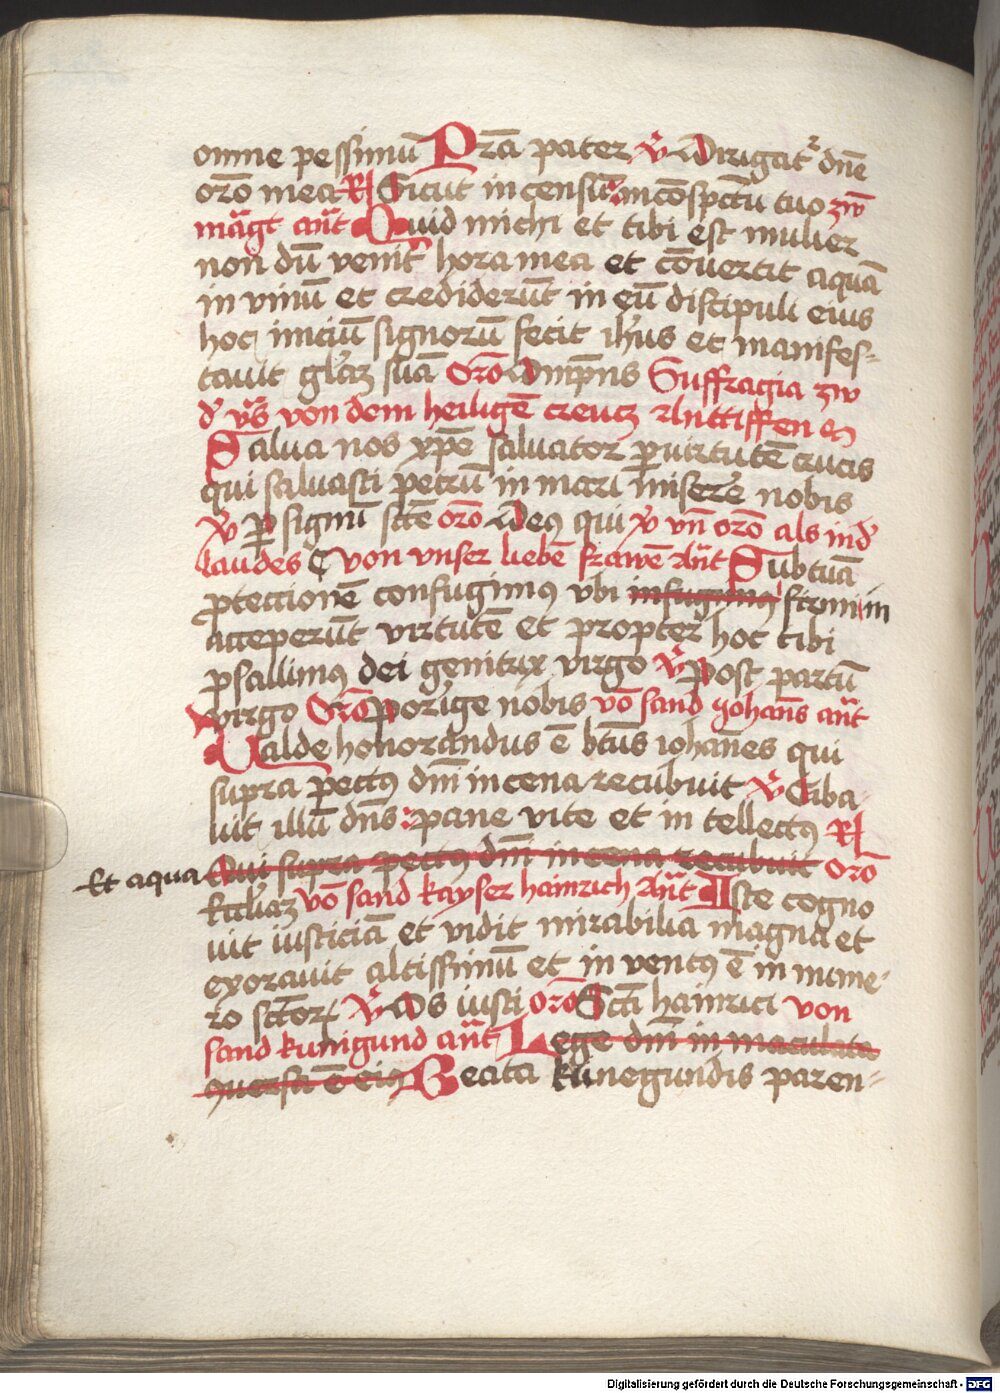 omne pessimū Pr̄a pater ꝟ Dirigatᷣ dn̄e
orō mea R̸ Sicut incensū in cōspctū tuo zw̄
māgt an̄t Quid michi et tibi est mulier
non dū venit hora mea et cōuertit aquā
in vinū et crediderūt in eū discipuli eius
hoc iniciū signorū fecit ih̄us et manifes⸗
tauit gl̄az suā Orō Om̄pn̄s Suffragia zw
d' vꝰs von dem heiligē creucz Anttiffen
Salua nos xpē saluator ꝑ virtutē crucis
qui saluasti petrū in mari miserē nobis
ꝟ Per signū sctē orō Deꝰ qui ꝟ vn̄ orō als in d'
laudes von vnser liebē frawē An̄t Sub tuā
ꝓtectionē confugimꝰ vbi infugimꝰ firmi in
acceperūt virtutē et propter hoc tibi
psallimꝰ dei genitrix virgo ꝟ Post partū
virgo Orō Porrige nobis vō sand Johans an̄t
Valde honorandus ē btūs iohānes qui
supra pectꝰ dn̄i in cena recubuit ꝟ Ciba
uit illū dn̄s pane vite et in tellectꝰ R̸
Et aqua
Qui supra pectꝰ dn̄i in cena recubuit Orō
Eccl̄iaz vō sand kayser hainrich An̄t Iste cogno
uit iusticiā et vidit mirabilia magna et
exorauit altissimū et in ventꝰ ē in nume⸗
ro sctōrꝝ ꝟ Os iusti orō Scti hainrici von
sand kunigund an̄t Lege dn̄i in maculata
Beata kunegundis paren⸗
Digitalisierung gefördert durch die Deutsche Forschungsgemeinschaft - DFG